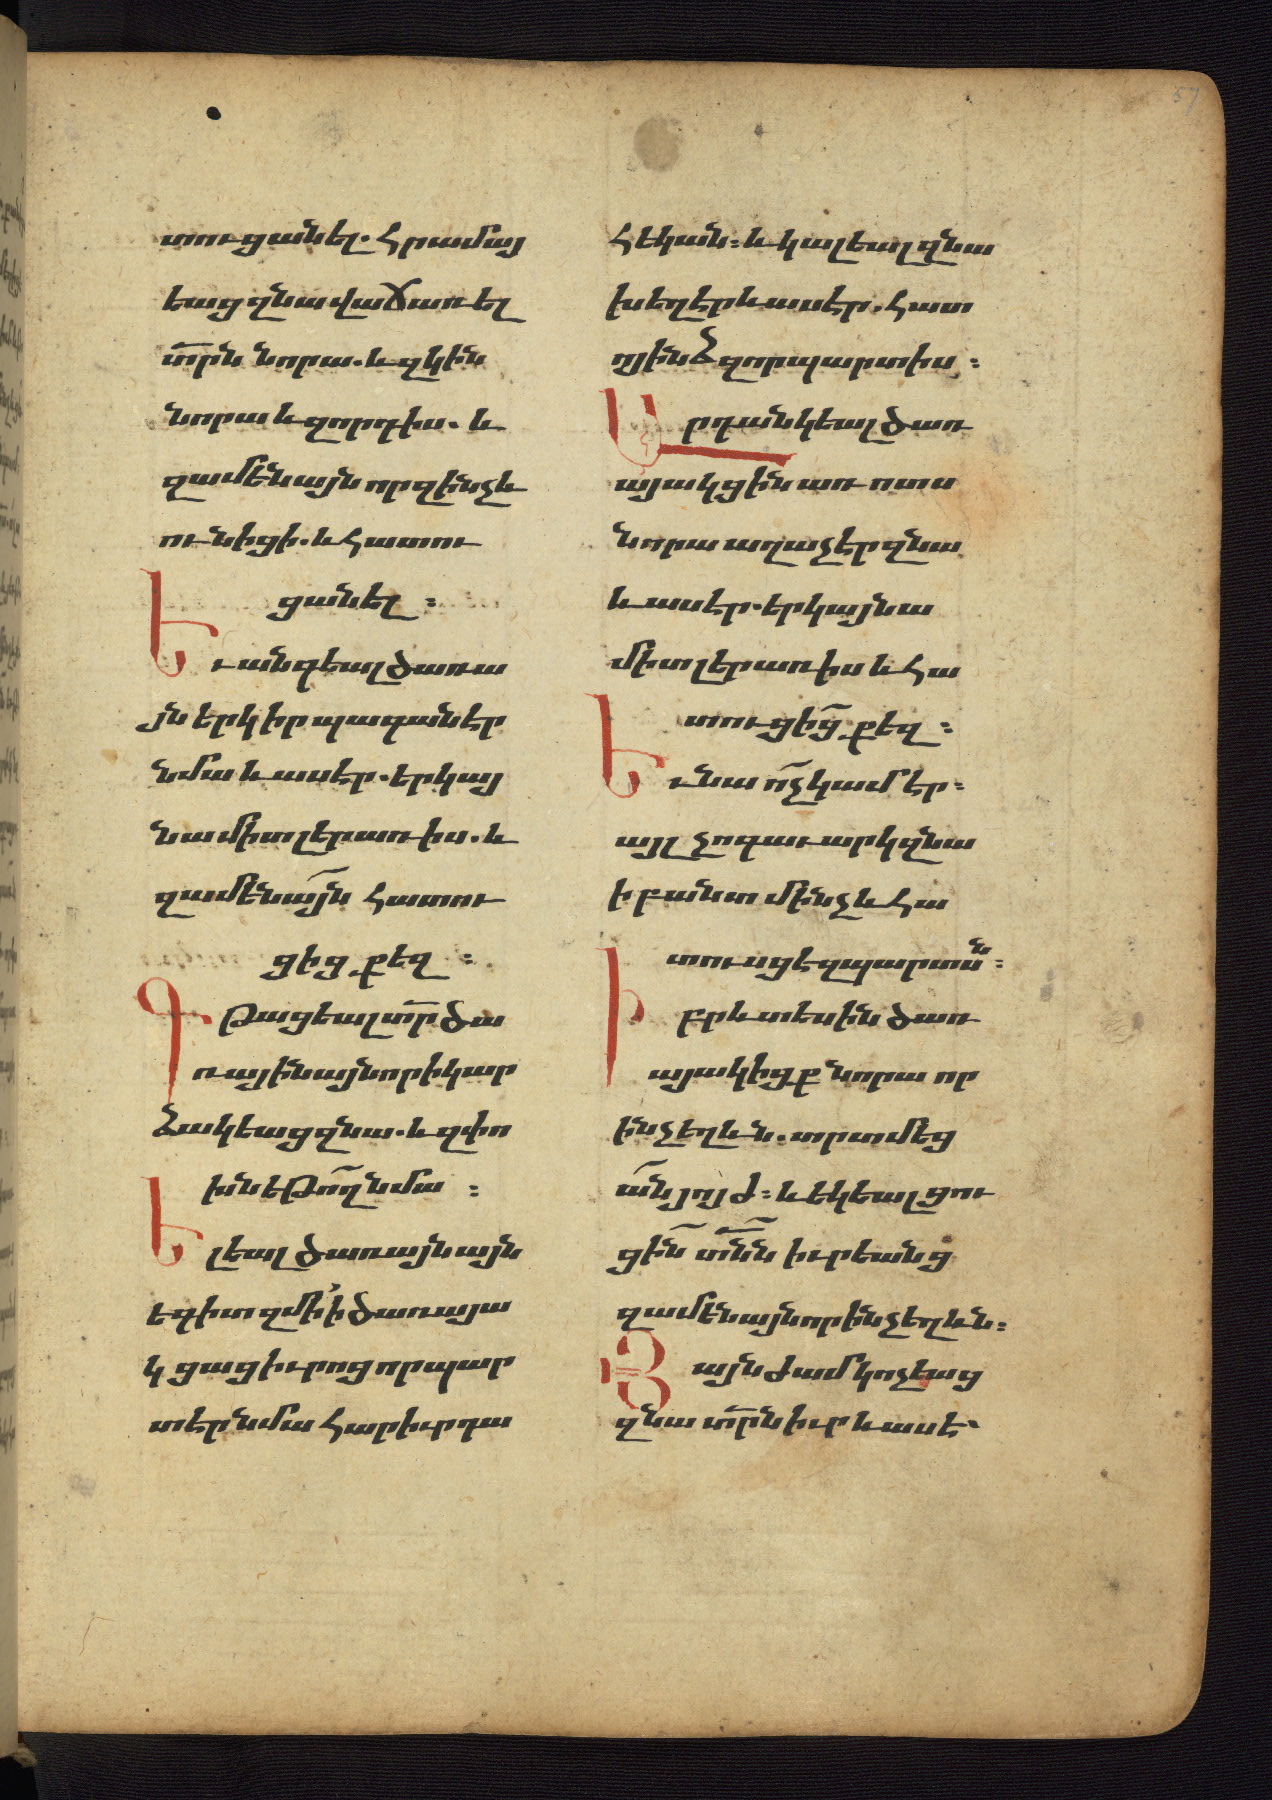 տուցանել. հրամայ
եաց զնա վաճառել
տր̄ն նորա. և զկին
նորա և զորդիս. և
զամենայն որ զինչ և
ունիցի. և հատու
ցանել :
Եւ անգեալ ծառա
յն երկիր պագանէր
նմա և ասէր. երկայ
նամիտ լեր առ իս. և
զամենայ̄ն հատու
ցից քեզ :
Գթացեալ տր̄ ծա
ռային այնորիկ ար
ձակեաց զնա. և զփո
խն եթո̄ղ նմա :
Ելեալ ծառայն այն
եգիտ զմի ի ծառայա
կցաց իւրոց որ պար
տէր նմա հարիւր դա
հեկան : և կալեալ զնա
խեղէր և ասէր. հատ
ո յինձ զոր պարտիս :
Արդ անկեալ ծառ
այակցին առ ոտս
նորա աղաչէր զնա
և ասէր. երկայնա
միտ լեր առ իս և հա
տուցից̄ քեզ :
Եւ նա ո̄չ կամէր :
այլ չոգաւ արկ զնա
ի բանտ մինչև հա
տուսցէ զպարտսն̄ :
Իբրև տեսին ծառ
այակիցք նորա որ
ինչ եղևն. տրտմեց
ա̄ն յոյժ : և եկեալ ցու
ցին̄ տն̄ն իւրեանց
զամենայն որ ինչ եղևն :
Յայնժամ կոչեաց
զնա տր̄ն իւր և ասէ.
57